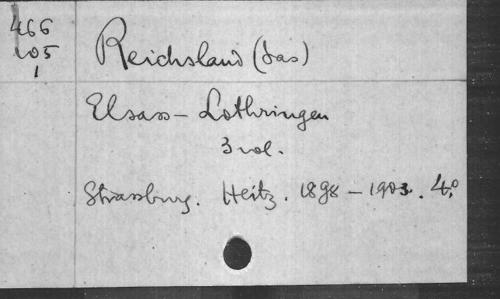 466
105
1
Reichsland (das)
Elsass - Lothringen
3 vol.
Strassburg. Heitz. 1898 - 1903. 4°